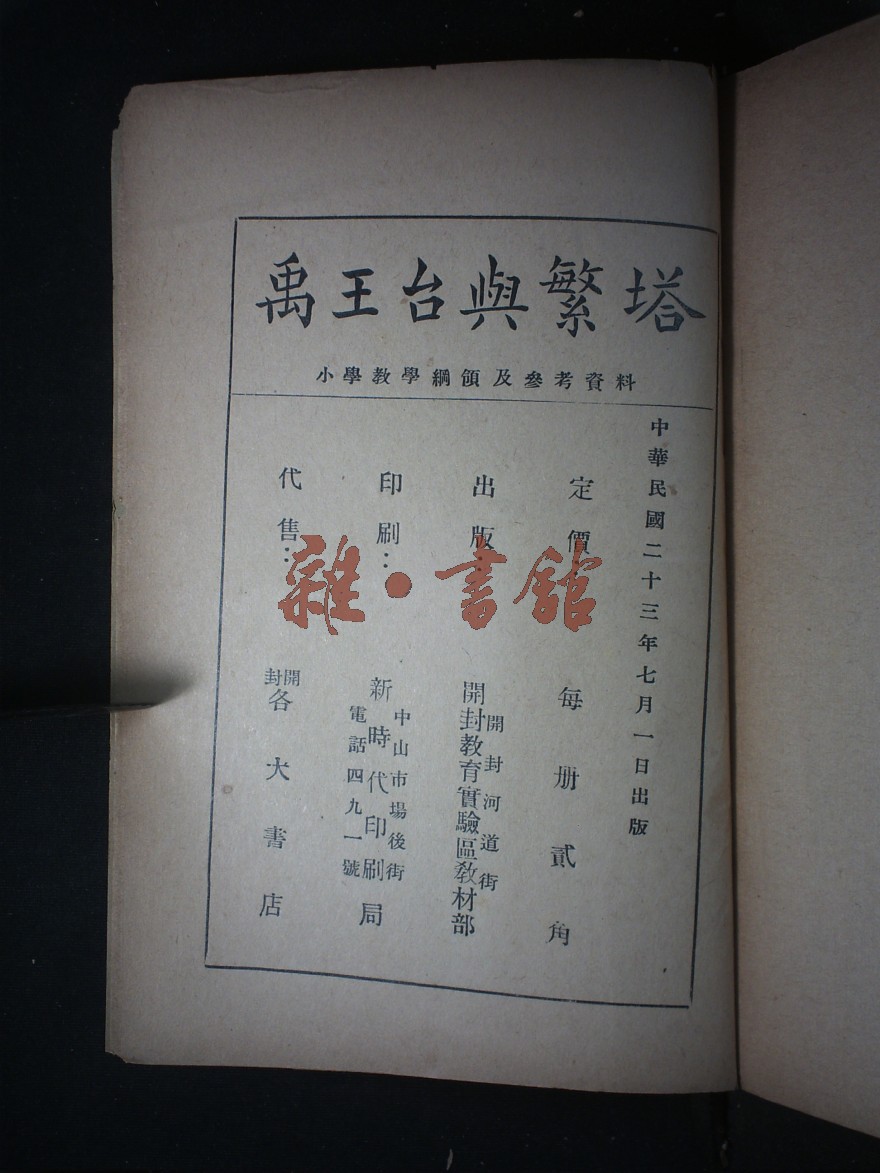 禹王台與繁塔
小學教學綱領及參考資料
中華民國二十三年七月一日出版
定價：每册貳角
出版：開封教育實驗區教材部
開封河道街
印刷：新時代印刷局
中山市場後街
電話四九一號
代售：開封各大書店
雜·書館